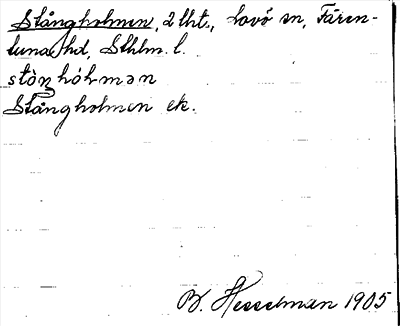 Stångholmen, 2 lht., Lovö sn, Fären-
tuna hd, Sthlm. l.
stòŋhòlmən
Stångholmen ek.
B. Hesselman 1905